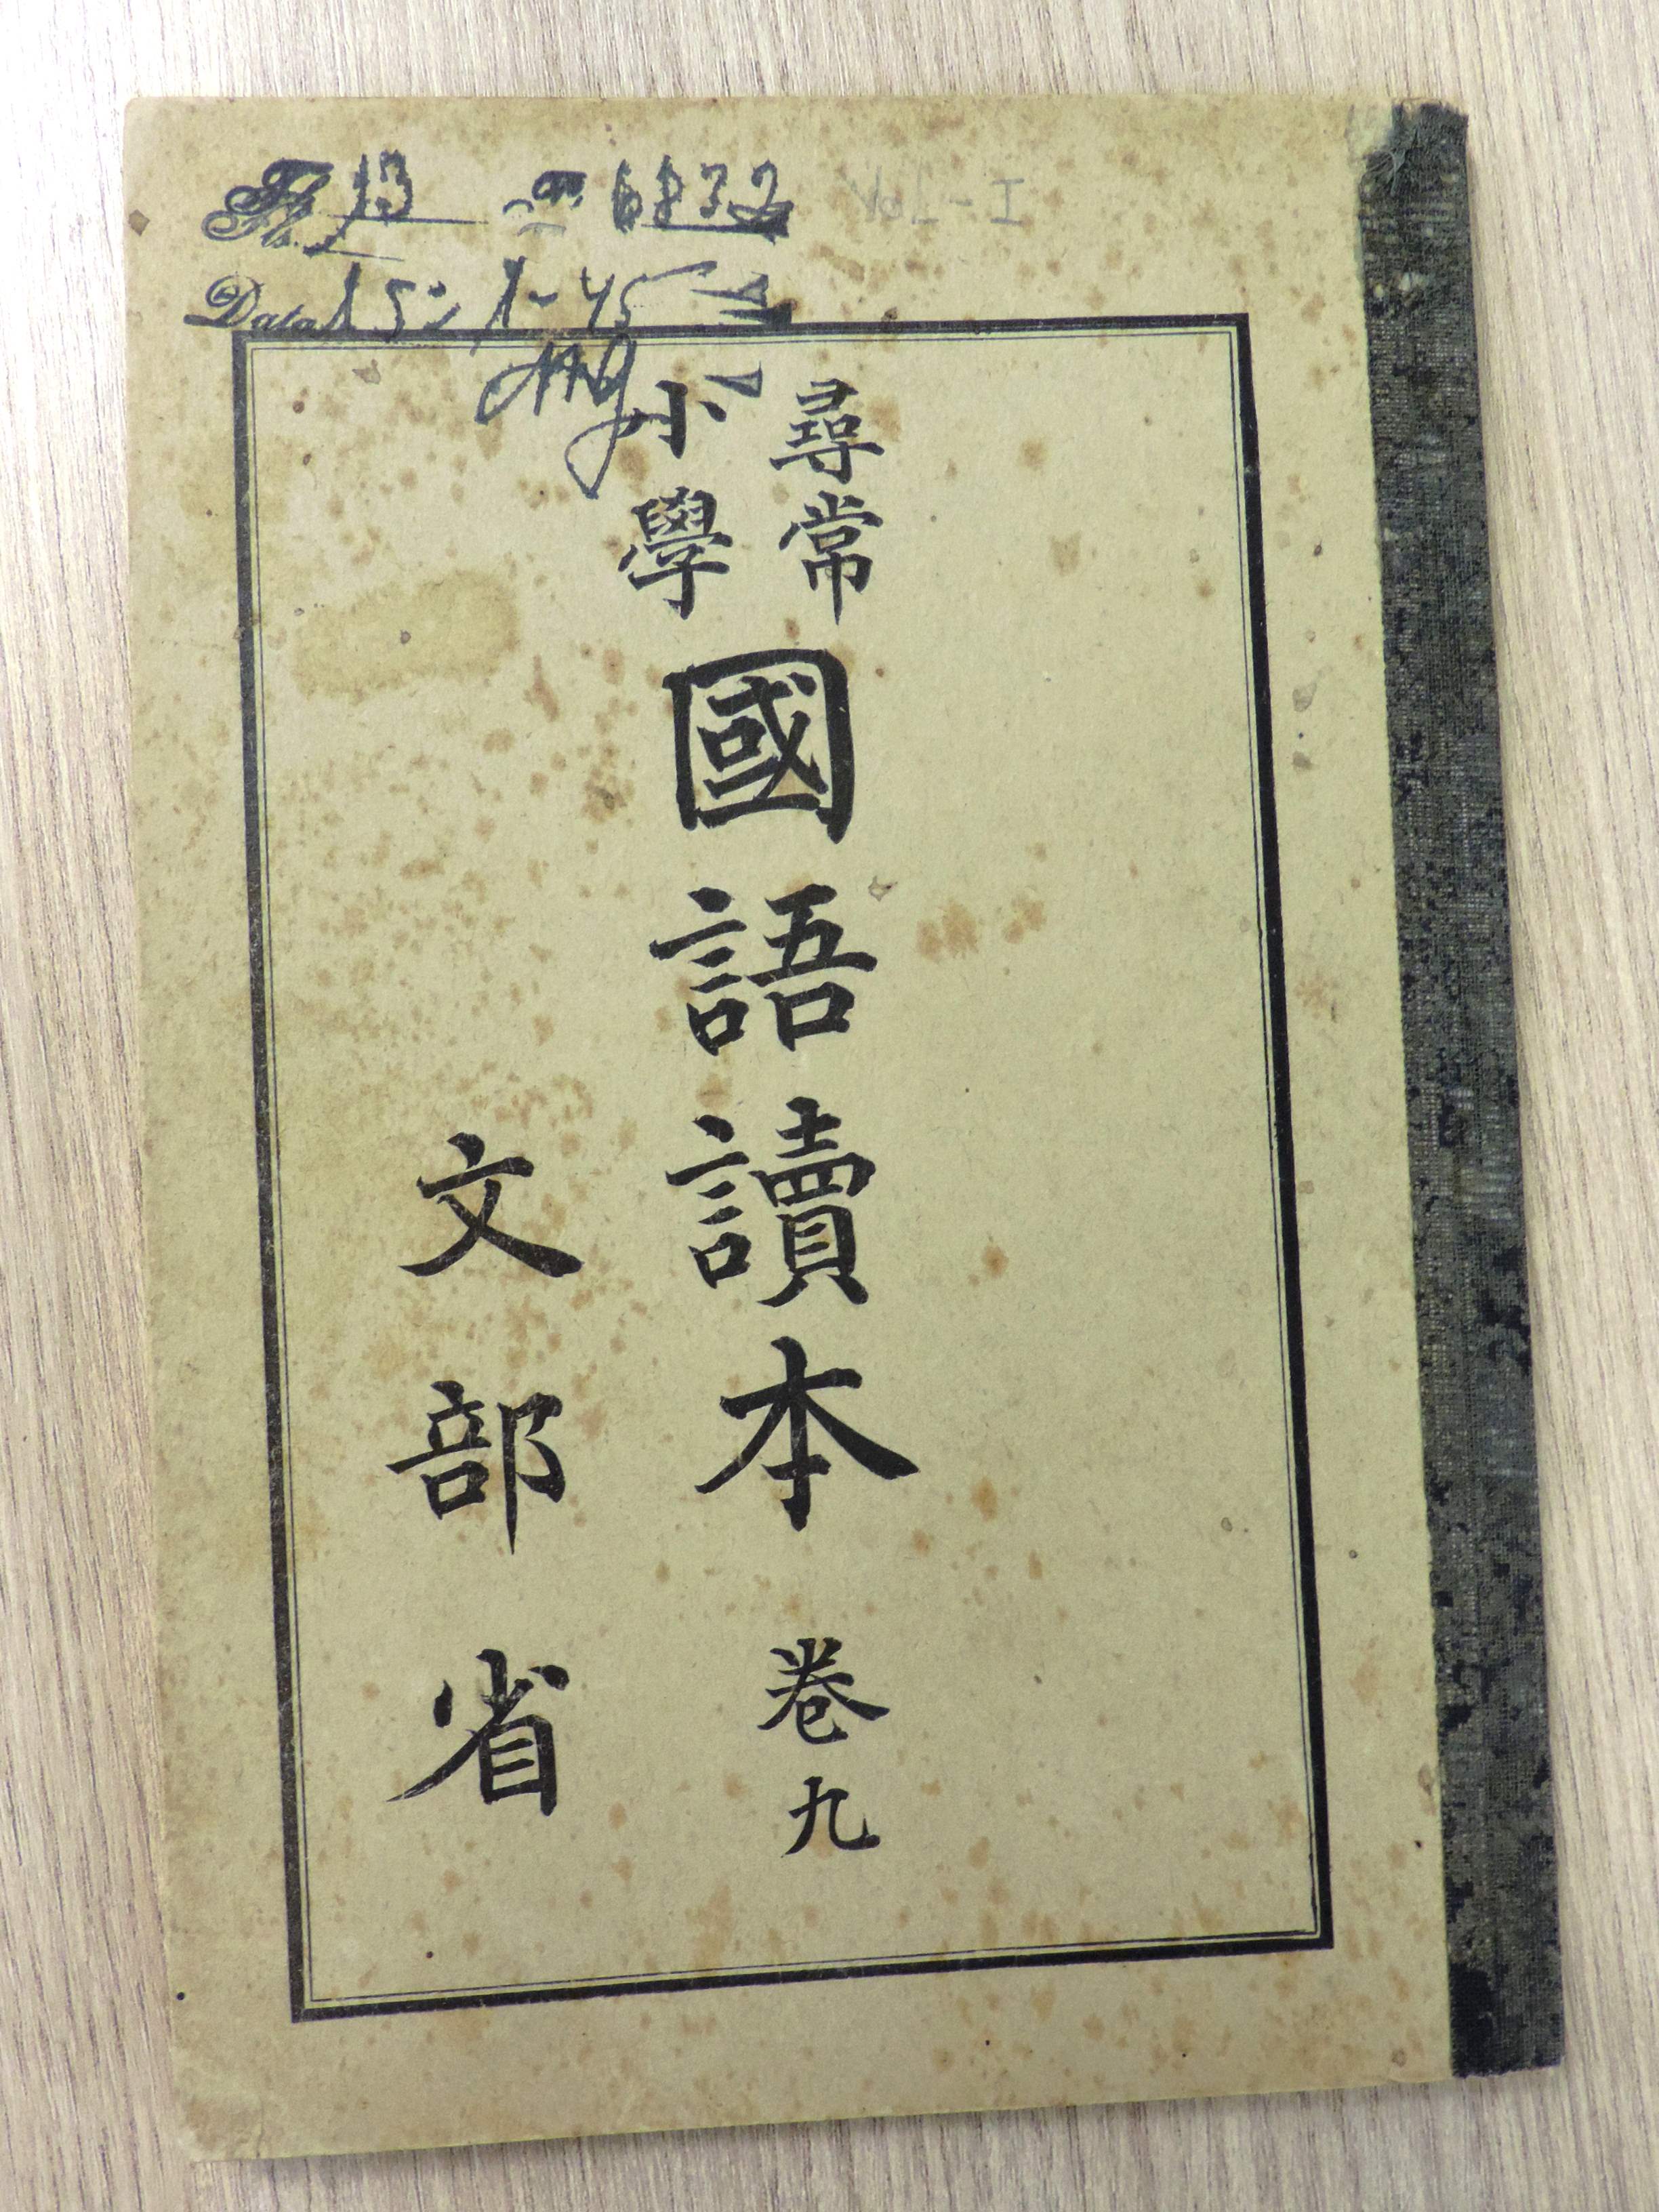 Fls. 13
6832
Data 15-1-45
尋常
小學
國語讀本 卷九
文部省